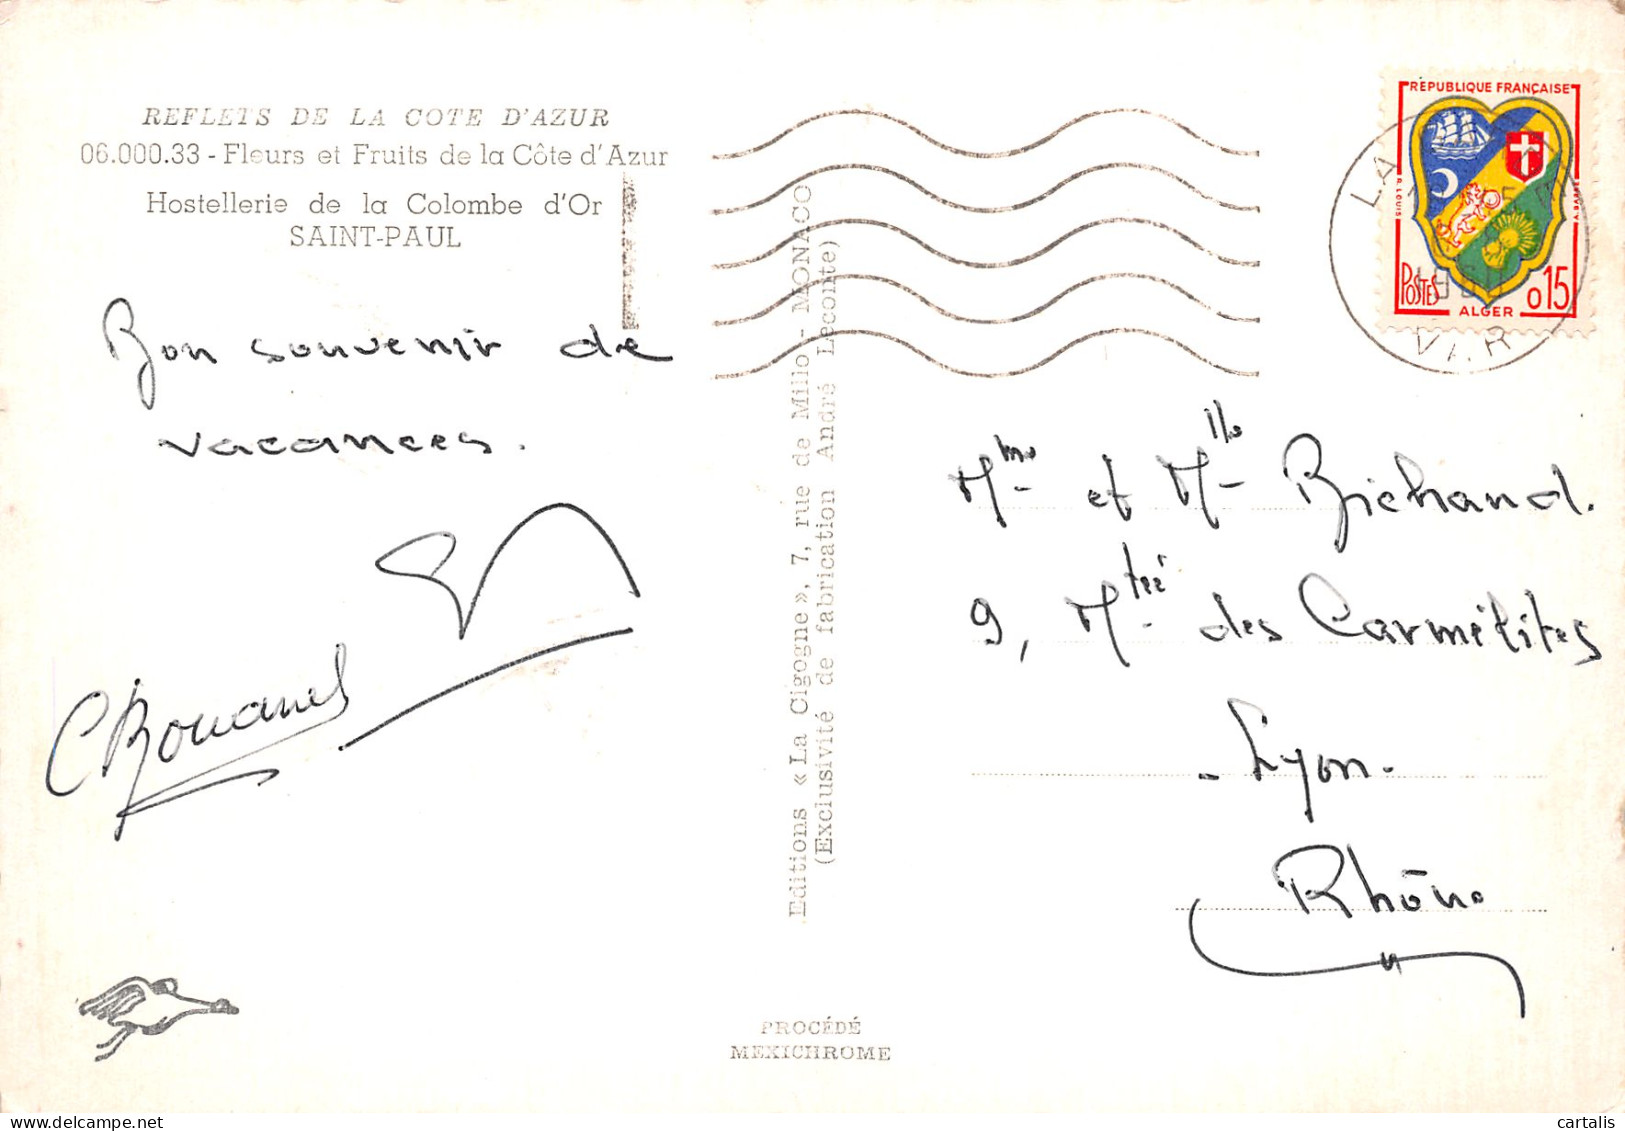 REFLETS DE LA COTE D'AZUR
06.000.33 - Fleurs et Fruits de la Côte d'Azur
Hostellerie de la Colombe d'Or
SAINT-PAUL
Bon souvenir de
vacances.
Editions « La Cigogne », 7, rue de Millo - MONACO
(Exclusivité de fabrication André Leconte)
PROCÉDÉ
MEXICHROME
RÉPUBLIQUE FRANÇAISE
POSTES
ALGER
0,15
LA
VAR
Mme et Mlle Bichand.
9, Mtée des Carmélites
- Lyon -
Rhône
cartalis
delcampe.net